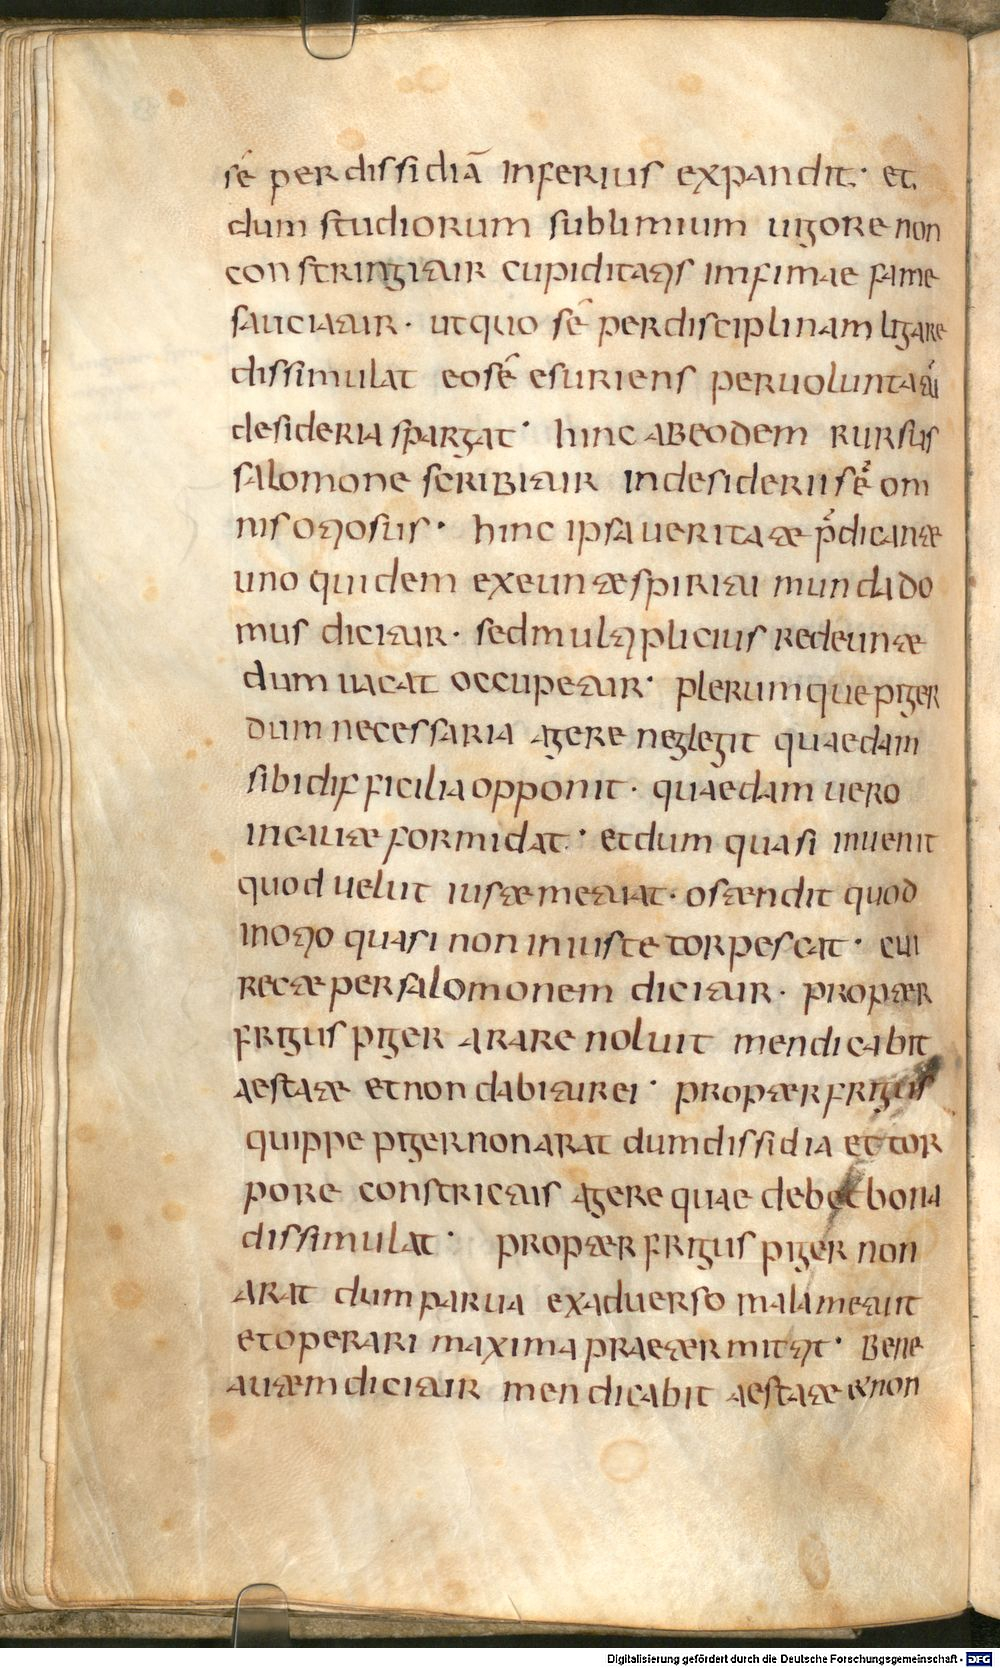 sē per dissidiā inferius expandit · et
dum studiorum sublimium uigore non
constringitur cupiditatis infimae fame
sauciatur · ut quo sē per disciplinam ligare
dissimulat eo sē esuriens per uoluntatū
desideria spargat · hinc ab eodem rursus
salomone scribitur in desideriis ē om
nis otiosus · hinc ipsa ueritate p̄dicante
uno quidem exeunte spiritu munda do
mus dicitur · sed multiplicius redeunte
dum uacat occupetur · plerumque piger
dum necessaria agere neglegit quaedam
sibi difficilia opponit · quaedam uero
incaute formidat · et dum quasi inuenit
quod uelut iuste metuat · ostendit quod
in otio quasi non iniuste torpescat · cui
recte per salomonem dicitur · propter
frigus piger arare noluit mendicabit
aestate et non dabitur ei · propter frigus
quippe piger non arat dum dissidia et tor
pore constrictus agere quae debet bona
dissimulat · propter frigus piger non
arat dum parua ex aduerso mala metuit
et operari maxima praetermittit · Bene
autem dicitur mendicabit aestate et non
Digitalisierung gefördert durch die Deutsche Forschungsgemeinschaft - DFG